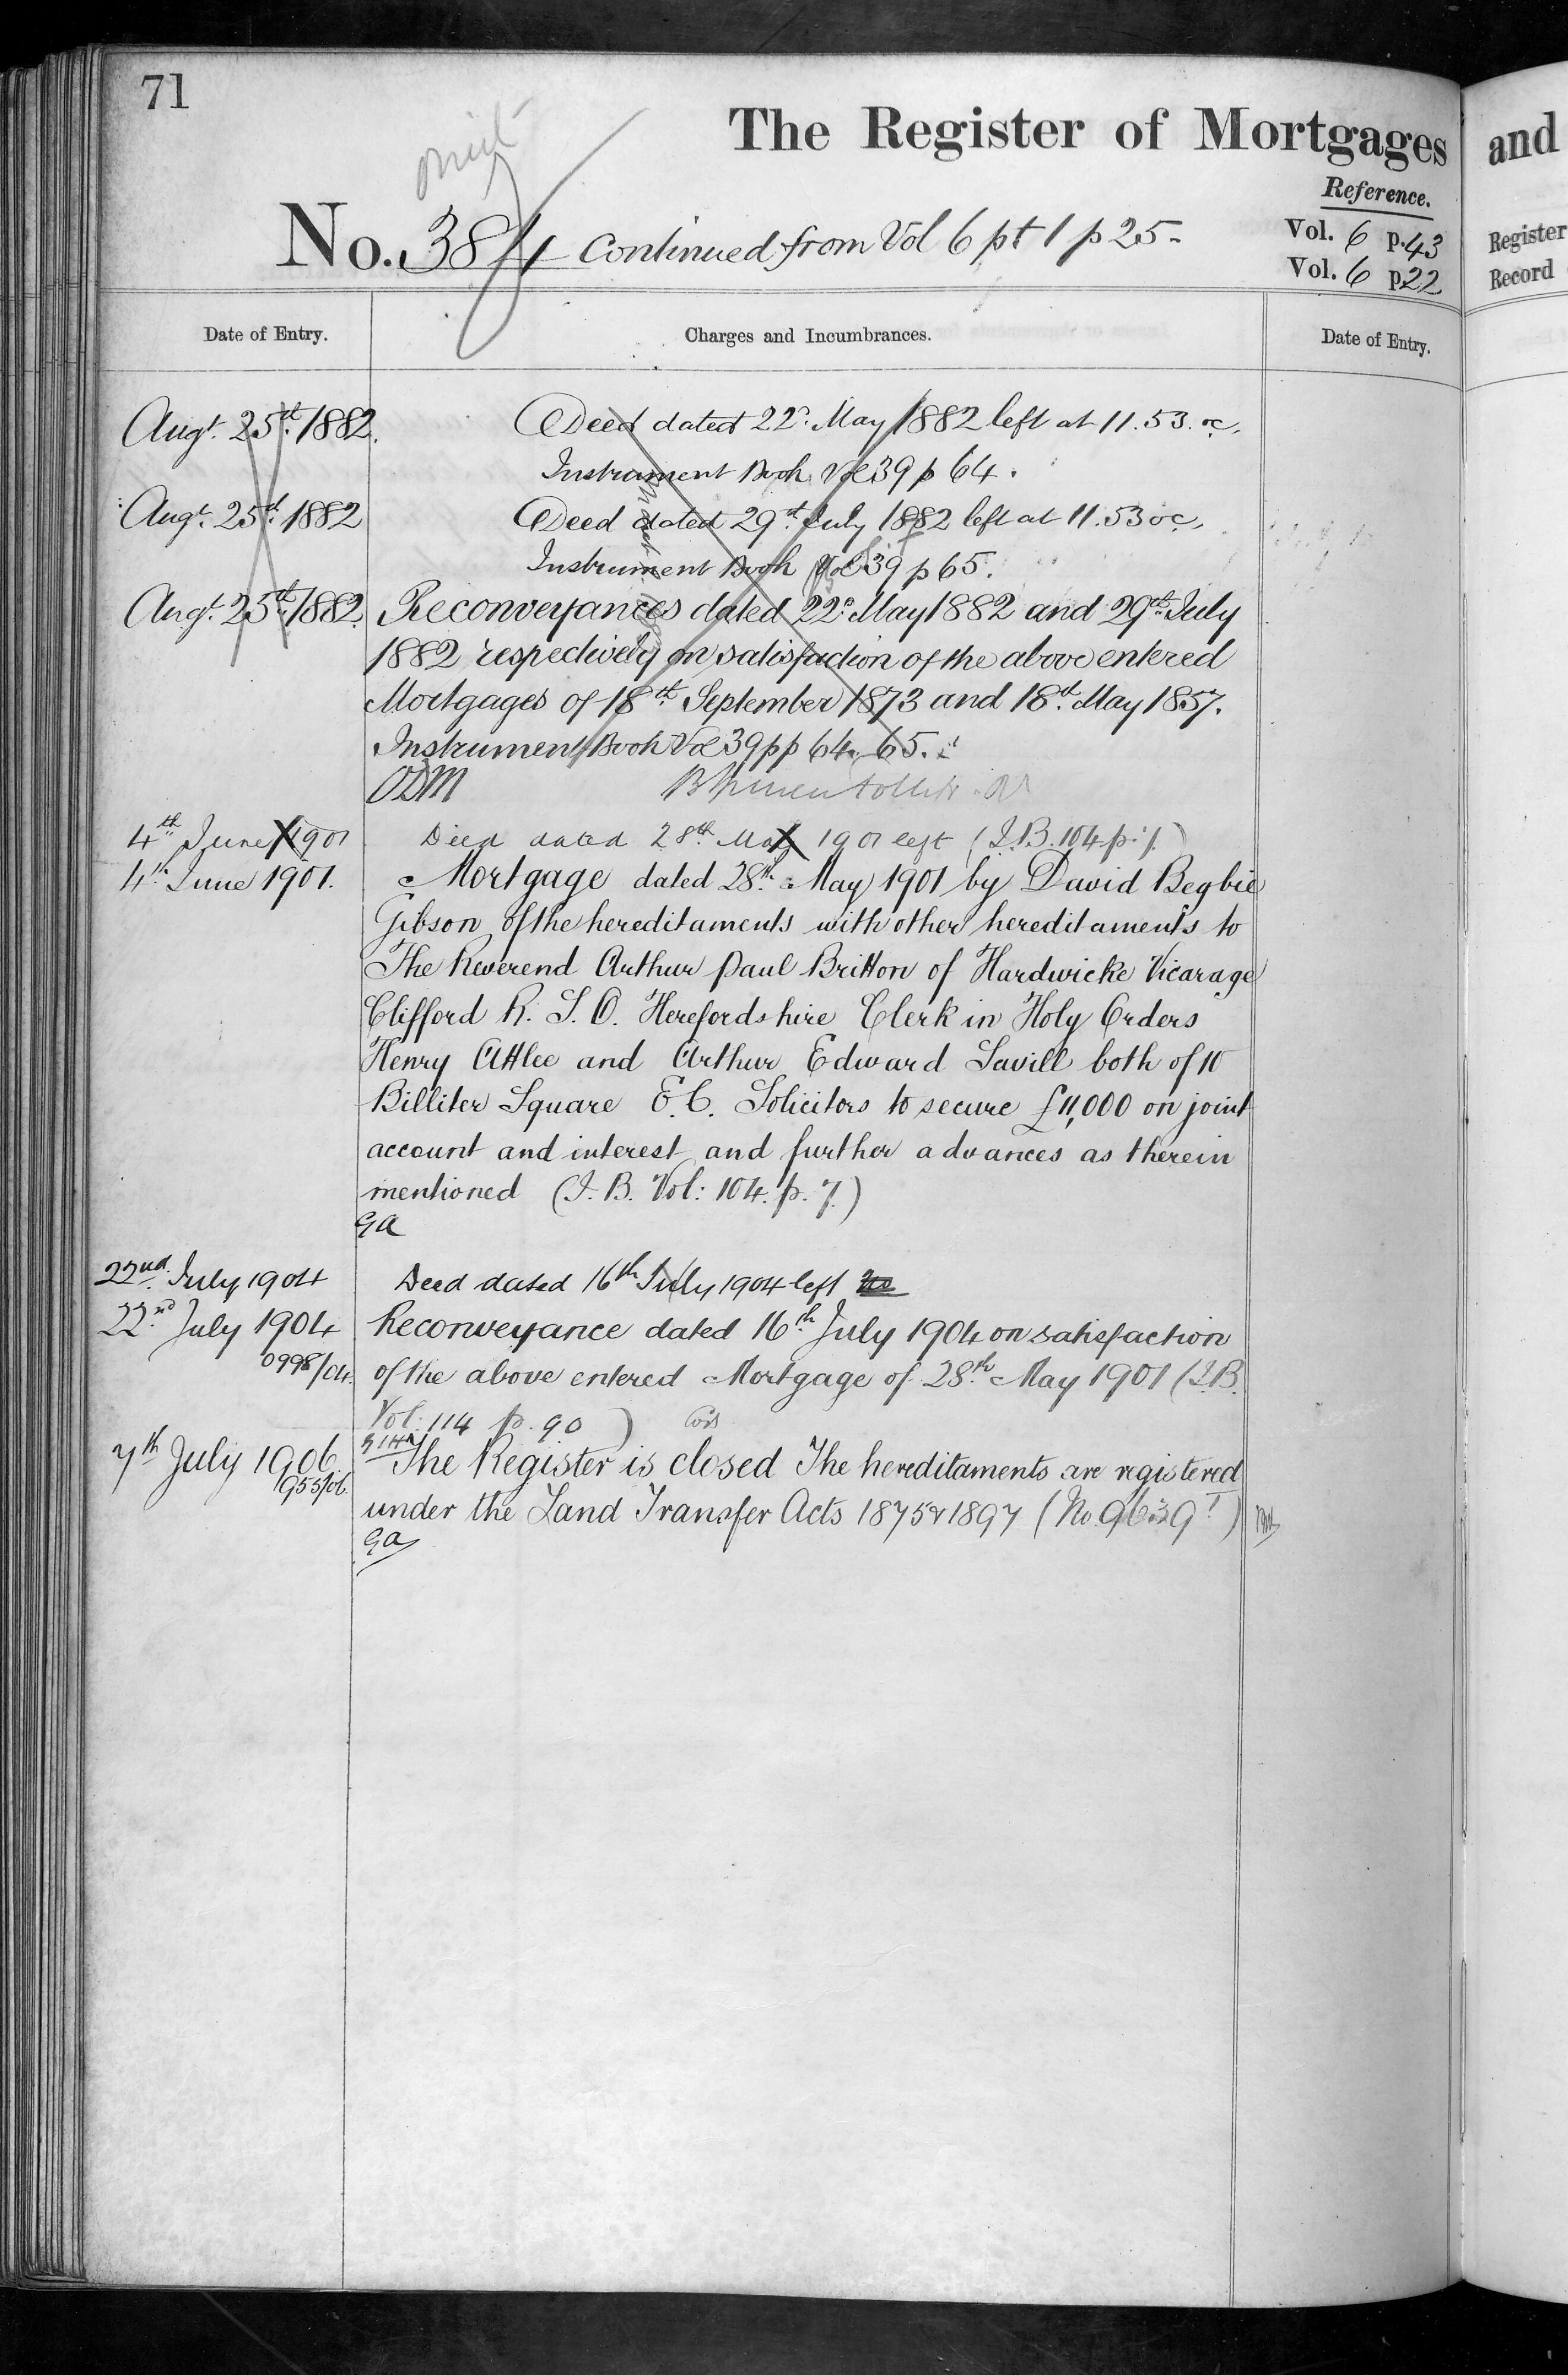 71
The Register of Mortgages
and
Reference.
No. 384 Continued from Vol 6 pt 1 p 25-
Vol. 6 p. 43
Register
Vol. 6 p. 22
Record
Date of Entry.
Charges and Incumbrances.
Date of Entry.
Augt. 25th 1882.
Deed dated 22d. May 1882 left at 11.53. oc.
Instrument Book Vol 39 p 64.
Augt. 25th 1882
Deed dated 29th July 1882 left at 11.53 oc.
Instrument Book Vol 39 p 65.
Augt. 25th 1882.
Reconveyances dated 22d May 1882 and 29th July
1882 respectively on satisfaction of the above entered
Mortgages of 18th September 1873 and 18th May 1857.
Instrument Book Vol 39 pp 64, 65.
ODM
4th June 1901
Deed dated 28th May 1901 left (I.B. 104 p. 7.)
4th June 1901.
Mortgage dated 28th May 1901 by David Begbie
Gibson of the hereditaments with other hereditaments to
The Reverend Arthur Paul Britton of Hardwicke Vicarage
Clifford R. S. O. Herefordshire Clerk in Holy Orders
Henry Attlee and Arthur Edward Savill both of 10
Billiter Square E.C. Solicitors to secure £11,000 on joint
account and interest and further advances as therein
mentioned (I.B. Vol: 104. p. 7.)
GA
22nd July 1904
Deed dated 16th July 1904 left
22nd July 1904
Reconveyance dated 16th July 1904 on satisfaction
0998/04.
of the above entered Mortgage of 28th May 1901 (I.B.
Vol. 114 p. 90 )
7th July 1906
The Register is closed The hereditaments are registered
955/06.
under the Land Transfer Acts 1875 & 1897 (No. 9639 )
GA